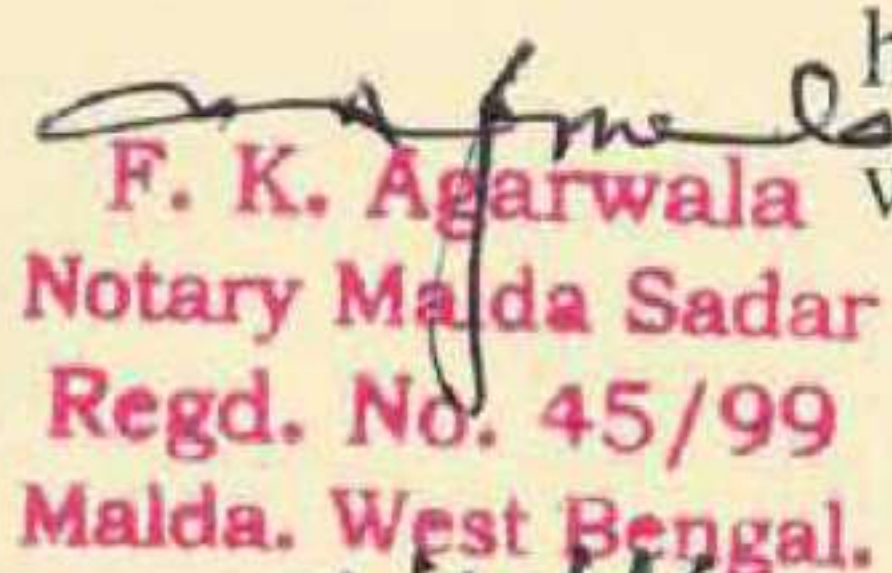 F. K. Agarwala
Notary Malda Sadar
Regd. No. 45/99
Malda. West Bengal.